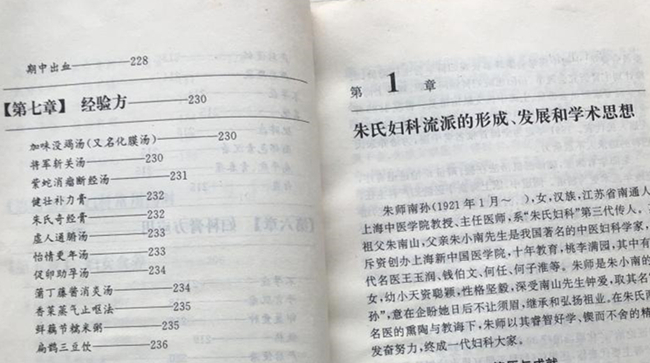 期中出血——228
【第七章】 经验方——230
加味没竭汤(又名化膜汤)——230
将军斩关汤——230
紫蛇消瘤断经汤——231
健壮补力膏——232
朱氏奇经膏——232
虚人通腑汤——233
怡情更年汤——233
促卵助孕汤——234
蒲丁藤酱消炎汤——234
香菜蒸气止呕法——235
鲜藕节糯米粥——235
扁鹊三豆饮——236
第 1 章
朱氏妇科流派的形成、发展和学术思想
朱师南孙(1921年1月~ ),女,汉族,江苏省南通人
上海中医学院教授、主任医师,系“朱氏妇科”第三代传人。
祖父朱南山,父亲朱小南先生是我国著名的中医妇科学家,
斥资创办上海新中国医学院,十年教育,桃李满园,其中有
代名医王玉润、钱伯文、何任、何子淮等。朱师是朱小南的
女,幼小天资聪颖,性格坚毅,深受南山先生钟爱,取其名
孙”,意在企盼她日后不让须眉,继承和弘扬祖业。在朱氏两
名医的熏陶与教诲下,朱师以其睿智好学、锲而不舍的精
发奋努力,终成一代妇科大家。